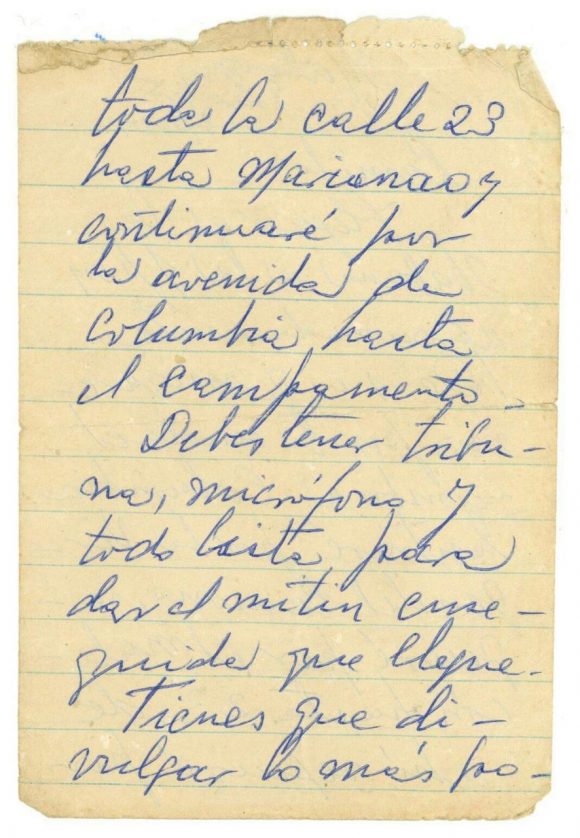 toda la calle 23
hasta Marianao y
continuaré por
la avenida de
Columbia hasta
el campamento.
Debes tener tribu-
na, micrófono y
todo listo para
dar el mitin ense-
guida que llegue.
Tienes que di-
vulgar lo más po-